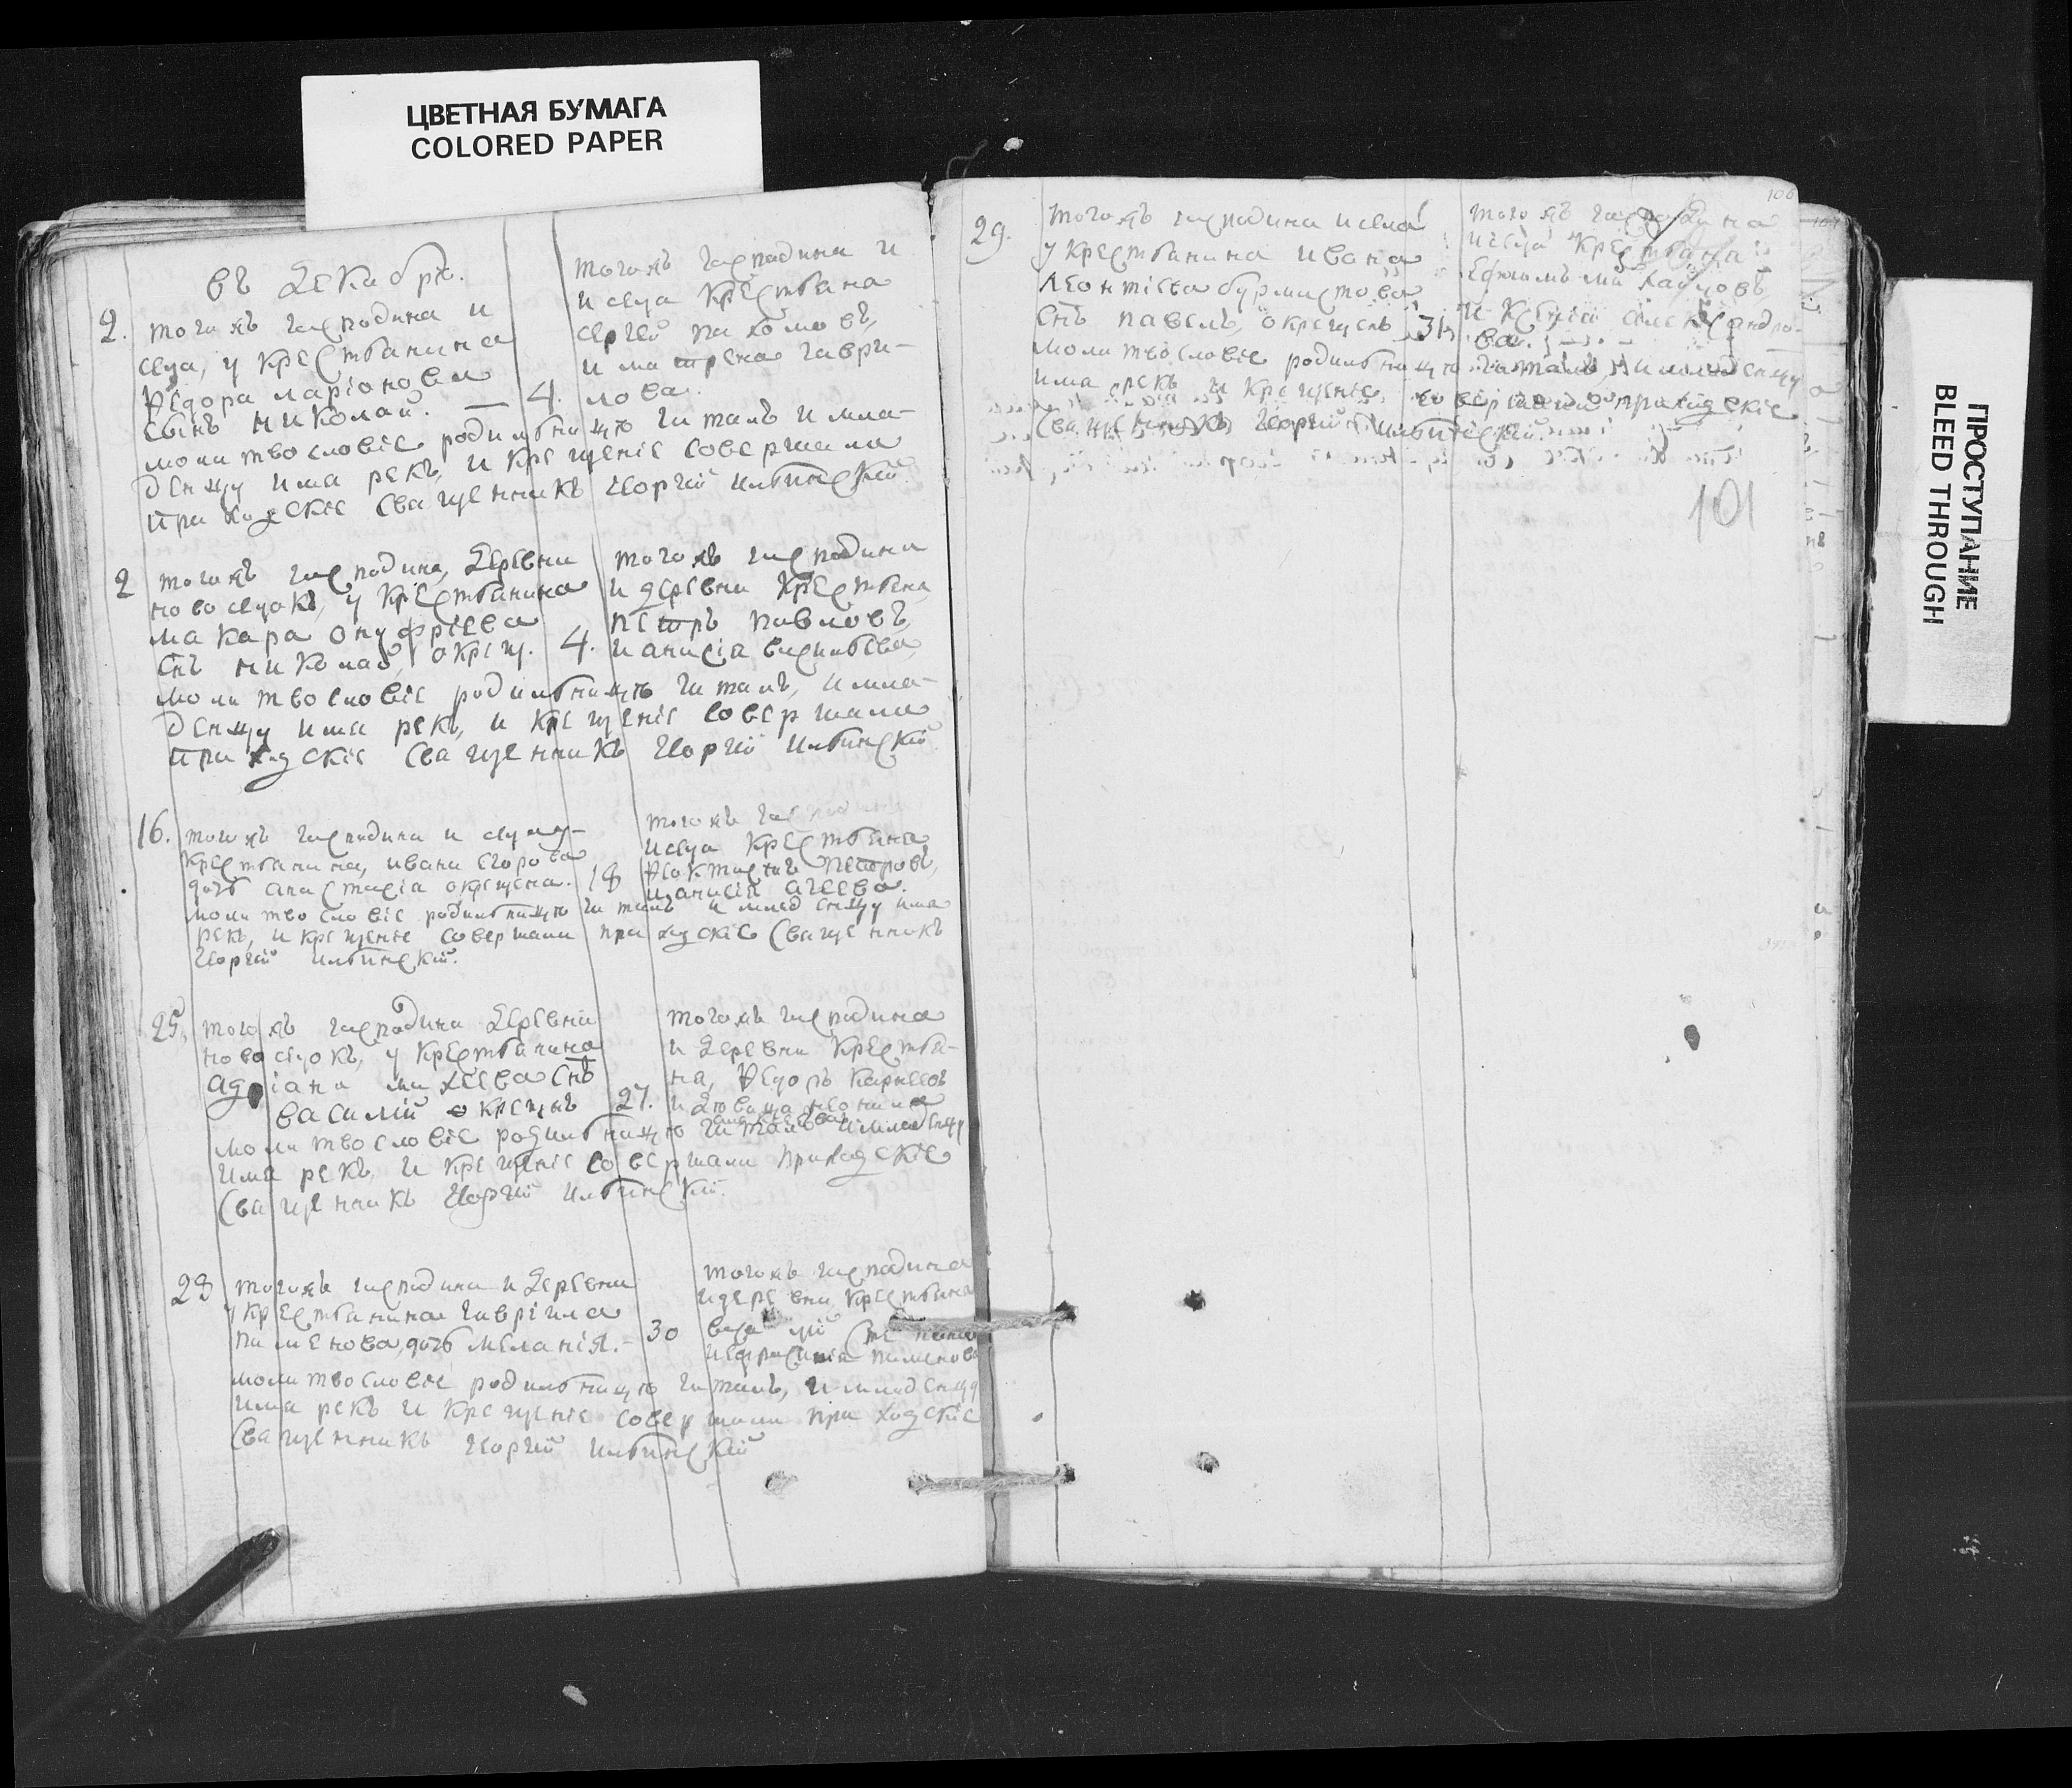 ЦВЕТНАЯ БУМАГА
COLORED PAPER
въ декабрѣ.
2. тогожъ господина и
села, у крестьянина
Ѳедора ларіонова
сынъ николай. — 4.
тогожъ господина и
и села крестьяна
сергей пахомовъ,
и матрена гаври-
лова.
молитвословіе родильницѣ читалъ и мла-
денцу имя рекъ, и крещеніе совершали
приходскіе священникъ георгій ильинскій.
2 тогожъ господина, деревни
новоселокъ, у крестьянина
макара онуфріева
снъ николай, окрещ. 4.
тогожъ господина
и деревни крестьяна
петръ павловъ,
и анисіа васильева,
молитвословіе родильницѣ читалъ, и мла-
денцу имя рекъ, и крещеніе совершали
приходскіе священникъ георгій ильинскій
16. тогожъ господина и села у-
крестьянина, ивана егорова
дочь анастасіа окрещена. 18
тогожъ господина
и села крестьяна
Ѳеоктистъ петровъ,
и анисія агеева.
молитвословіе родильницѣ читалъ и младенцу имя
рекъ, и крещеніе совершали приходскіе священникъ
георгій ильинскій.
25. тогожъ господина деревни
новоселокъ, у крестьянина
адріана михеева снъ
василій окрещенъ 27.
тогожъ господина
и деревни крестья-
на, Ѳедоръ
и девица
молитвословіе родильницѣ читалъ и младенцу
имя рекъ, и крещеніе совершали приходскіе
священникъ георгій ильинскій.
28 тогожъ господина и деревни
у крестьянина гавріила
пименова, дочь меланія. — 30
тогожъ господина
и деревни крестьяна
и пименова
молитвословіе родильницѣ читалъ, и младенцу
имя рекъ и крещеніе совершали приходскіе
священникъ георгій ильинскій
106
29. тогожъ господина и села
у крестьянина ивана
леонтіева бурмистрова
снъ павелъ, окрещенъ 31.
тогожъ господина
и села крестьяна
и александро-
ва.
молитвословіе родильницѣ читалъ, и младенцу
имя рекъ и крещеніе, совершали приходскіе
священникъ георгій ильинскій.
101
ПРОСТУПАНИЕ
BLEED THROUGH